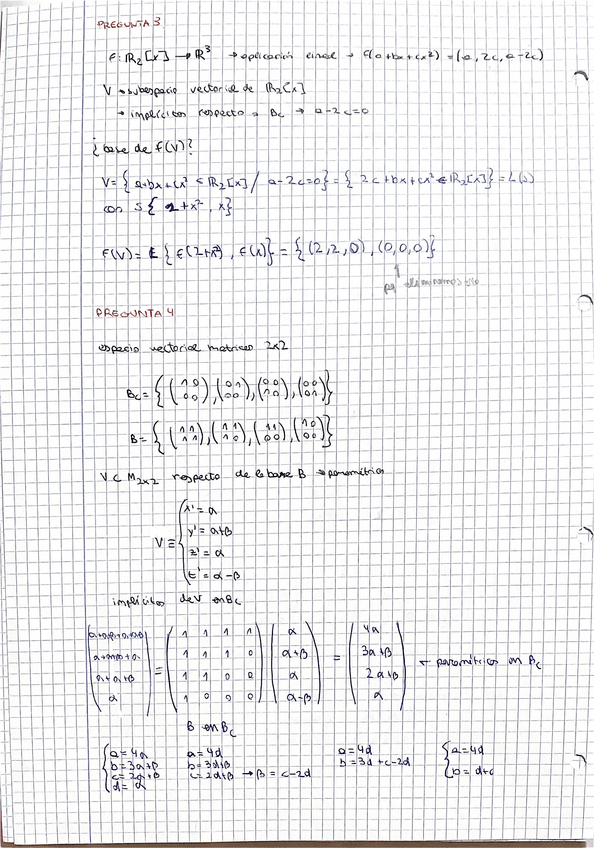 PREGUNTA 3
f: ℝ₂[x] → ℝ³ → aplicación lineal → f(a+bx+cx²) = (a, 2c, a-2c)
V → subespacio vectorial de ℝ₂[x]
→ implícitas respecto a Bc → a-2c=0
¿base de f(V)?
V = { a+bx+cx² ∈ ℝ₂[x] / a-2c=0} = { 2c+bx+cx² ∈ ℝ₂[x]} = L(S)
con S { 2+x², x}
f(V) = { f(2+x²), f(x)} = { (2,2,0), (0,0,0)}
eliminamos
PREGUNTA 4
espacio vectorial matrices 2x2
Bc = { (1 0 / 0 0), (0 1 / 0 0), (0 0 / 1 0), (0 0 / 0 1) }
B = { (1 1 / 1 1), (1 1 / 1 0), (1 1 / 0 0), (1 0 / 0 0) }
V ⊂ M₂ₓ₂ respecto de la base B → paramétricas
x' = α
y' = α+β
V ≡
z' = α
t' = α-β
implícitas de V en Bc
α+α+β+α+α-β 1 1 1 1 α 4α
α+α+β+α 1 1 1 0 α+β 3α+β
= = ← paramétricas en Bc
α+α+β 1 1 0 0 α 2α+β
α 1 0 0 0 α-β α
B en Bc
a = 4α a = 4d a = 4d a = 4d
b = 3α+β b = 3d+β b = 3d+c-2d b = d+c
c = 2α+β c = 2d+β → β = c-2d
d = α